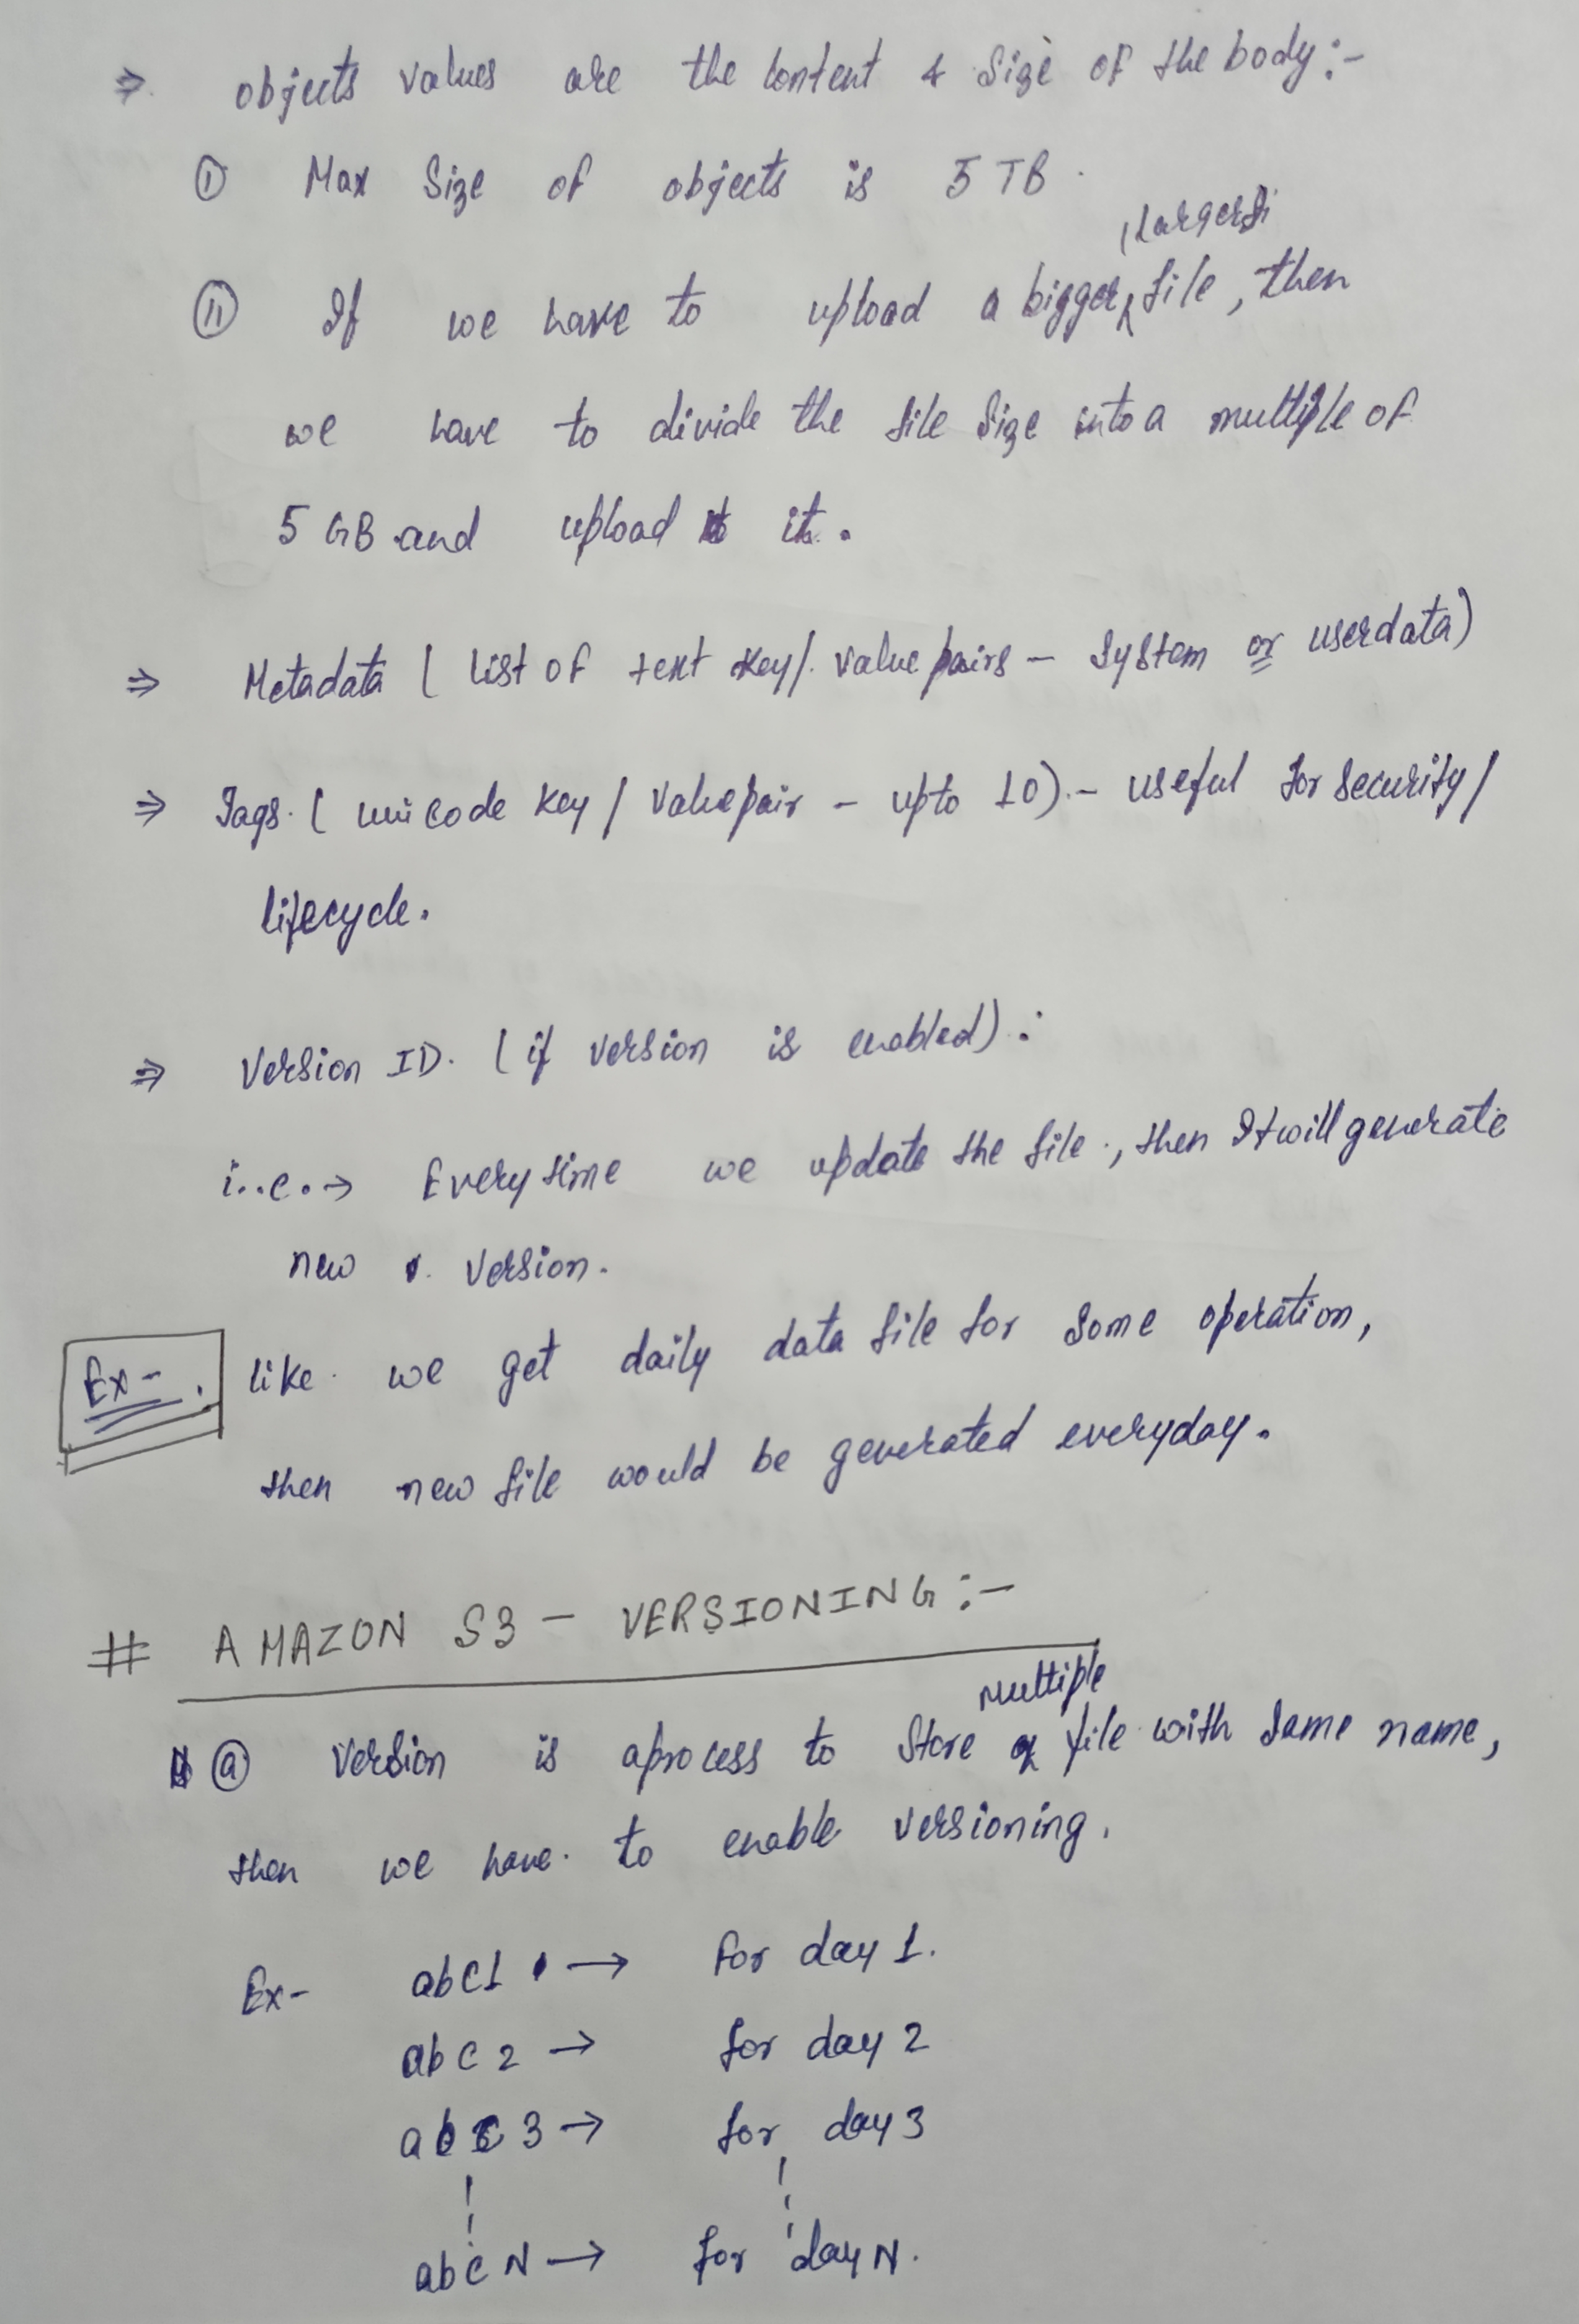 ⇒ objects values are the content & Size of the body:-
① Max Size of objects is 5 TB.
⑪ If we have to upload a bigger, file, then
we have to divide the file Size into a multiple of
5 GB and upload it.
⇒ Metadata ( list of text key/. value pairs - System or userdata)
⇒ Tags. ( unicode key / value pair - upto 10).- useful for security/
lifecycle.
⇒ Version ID. (if version is enabled):
i..e.→ Every time we update the file., then It will generate
new version.
Ex-. like we get daily data file for some operation,
then new file would be generated everyday.
# AMAZON S3 - VERSIONING:-
ⓐ Version is a process to Store multiple file with same name,
then we have. to enable versioning.
Ex- abc1 → For day 1.
abc 2 → for day 2
abc 3 → for day 3
abc N → for day N.